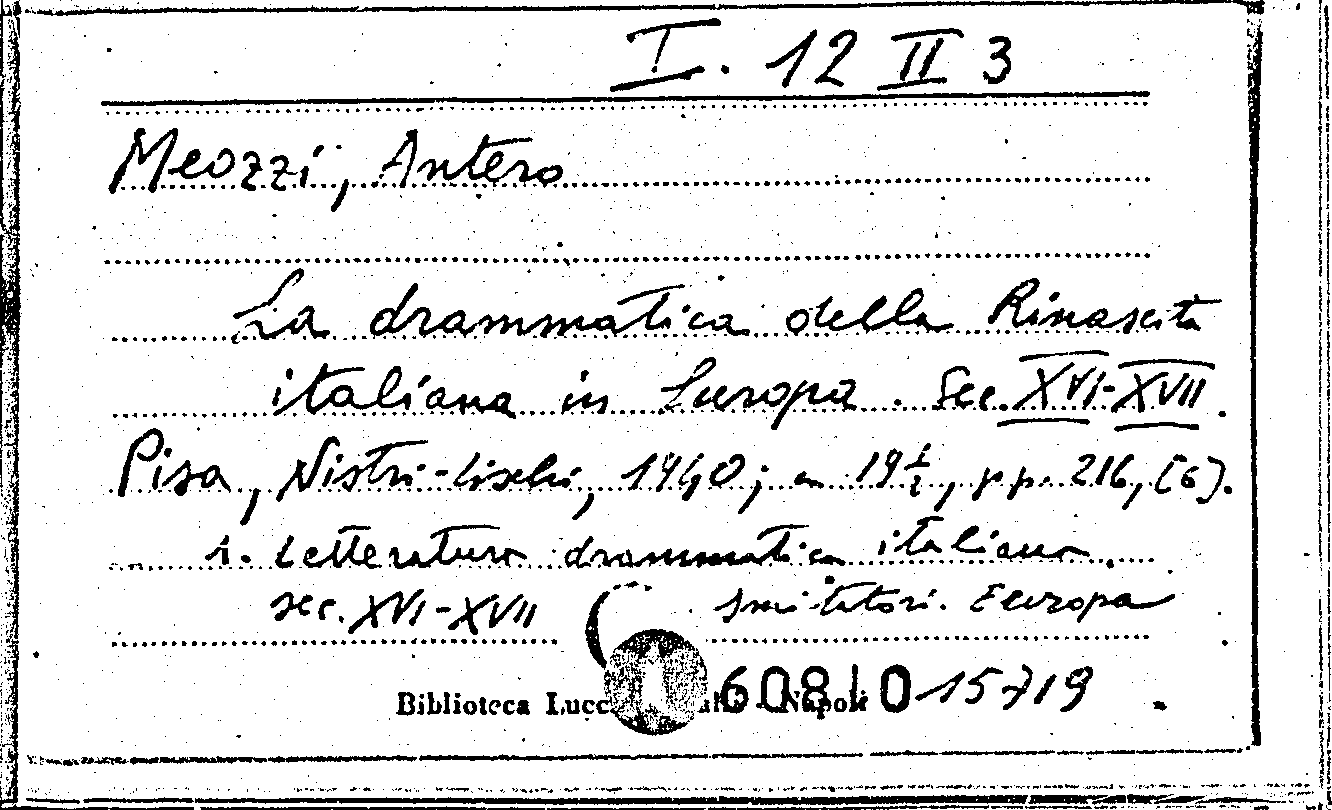 I. 12 II 3
Meozzi, Antero
La drammatica della Rinascita
italiana in Europa. Sec. XVI-XVII.
Pisa, Nistri-Lischi, 1940; in 19½, pp. 216, [6].
1. Letteratura drammatica italiana
sec. XVI-XVII Imitatori. Europa
Biblioteca Napoli 60810 15719